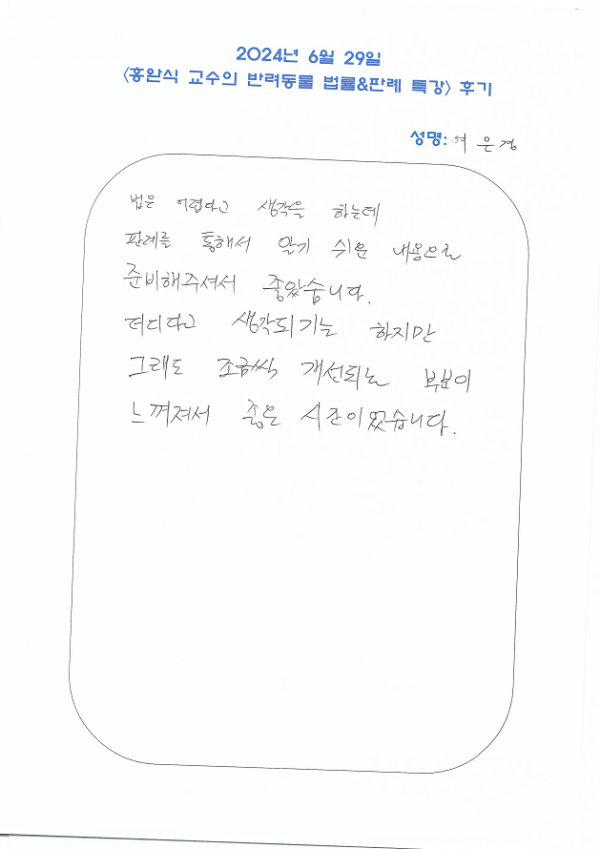 2024년 6월 29일
<홍완식 교수의 반려동물 법률&판례 특강> 후기
성명: 여은경
법은 어렵다고 생각을 하는데
판례를 통해서 알기 쉬운 내용으로
준비해주셔서 좋았습니다.
더디다고 생각되기는 하지만
그래도 조금씩 개선되는 부분이
느껴져서 좋은 시간이었습니다.